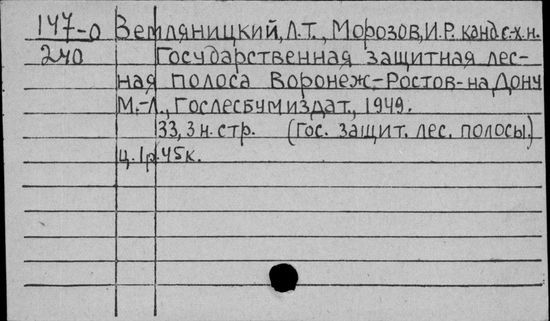 147-0 Земляницкий, Л.Т., Морозов, И.Р. канд. с.-х. н.
240 Государственная защитная лес-
ная полоса Воронеж-Ростов-на Дону
М.-Л., Гослесбумиздат, 1949.
33, 3 н. стр. (Гос. защит. лес. полосы.)
ц. 1р. 45к.